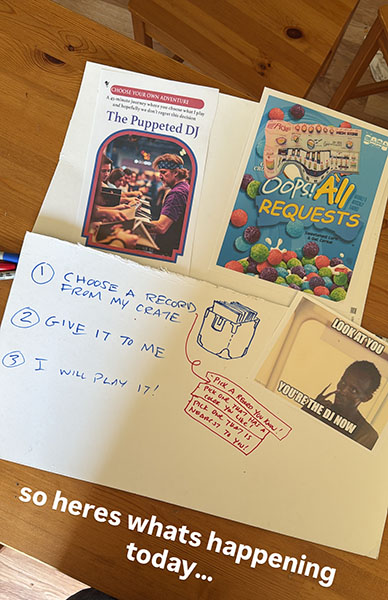 CHOOSE YOUR OWN ADVENTURE
A 45-minute journey where you choose what I play
and hopefully we don't regret this decision
The Puppeted DJ
OOPS! All
REQUESTS
① CHOOSE A RECORD
FROM MY CRATE
② GIVE IT TO ME
③ I WILL PLAY IT!
- PICK A RECORD YOU KNOW!
PICK ONE THAT HAS A
COLOR YOU LIKE!
PICK ONE THAT IS
NEAREST TO YOU!
LOOK AT YOU
YOU'RE THE DJ NOW
so heres whats happening
today...